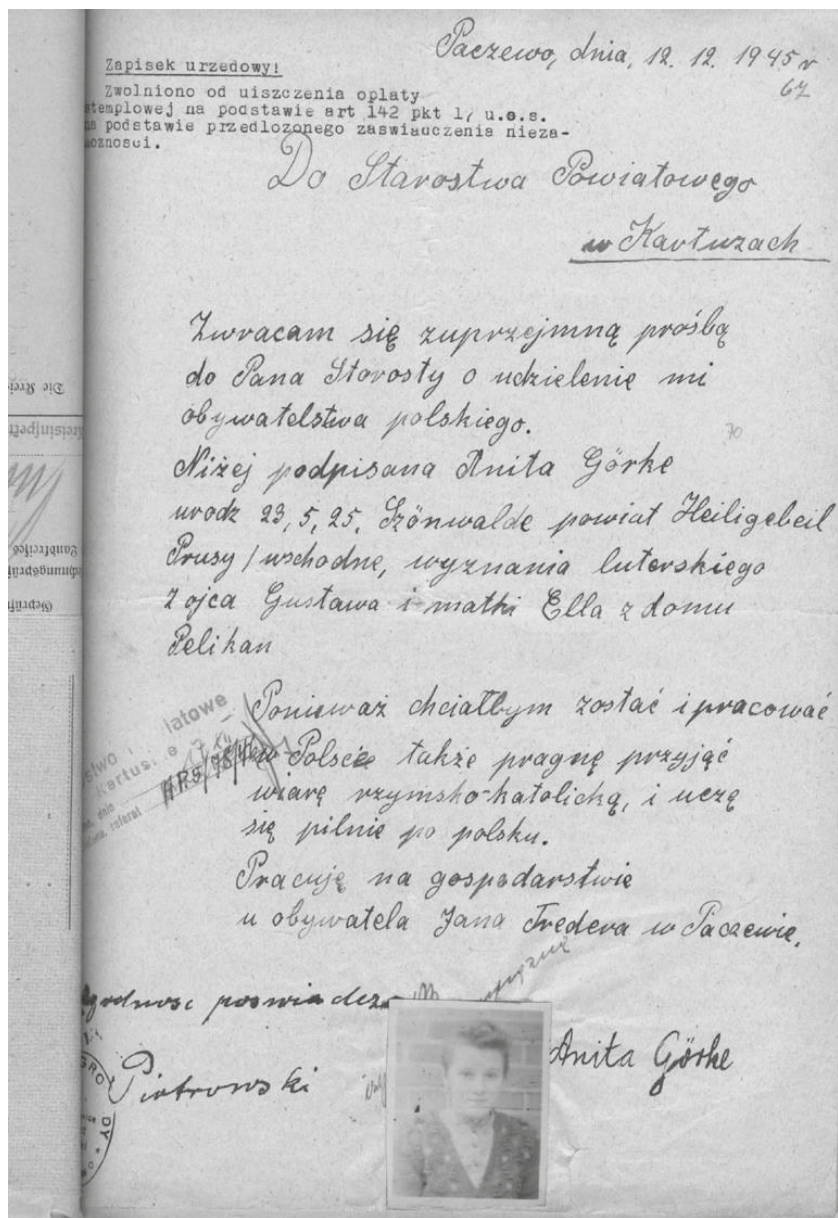 Paczewo, dnia, 12. 12. 1945 r
67
Zapisek urzedowy!
Zwolniono od uiszczenia opłaty
stemplowej na podstawie art 142 pkt 17 u.o.s.
na podstawie przedlozonego zaswiadczenia nieza-
moznosci.
Do Starostwa Powiatowego
w Kartuzach
Zwracam się zuprzejmną prośbą
do Pana Starosty o udzielenie mi
obywatelstwa polskiego.
70
Niżej podpisana Anita Görke
urodz 23,5,25, Szönwalde powiat Heiligebeil
Prusy/wschodne, wyznania luterskiego
z ojca Gustawa i matki Ella z domu
Pelikan
Ponieważ chciałbym zostać i pracować
w Polsce także pragnę przyjąć
wiarę rzymsko-katolicką, i uczę
się pilnie po polsku.
Pracuję na gospodarstwie
u obywatela Jana Tredera w Paczewie.
Zgodnosc poswiadcza
Anita Görke
Piotrowski